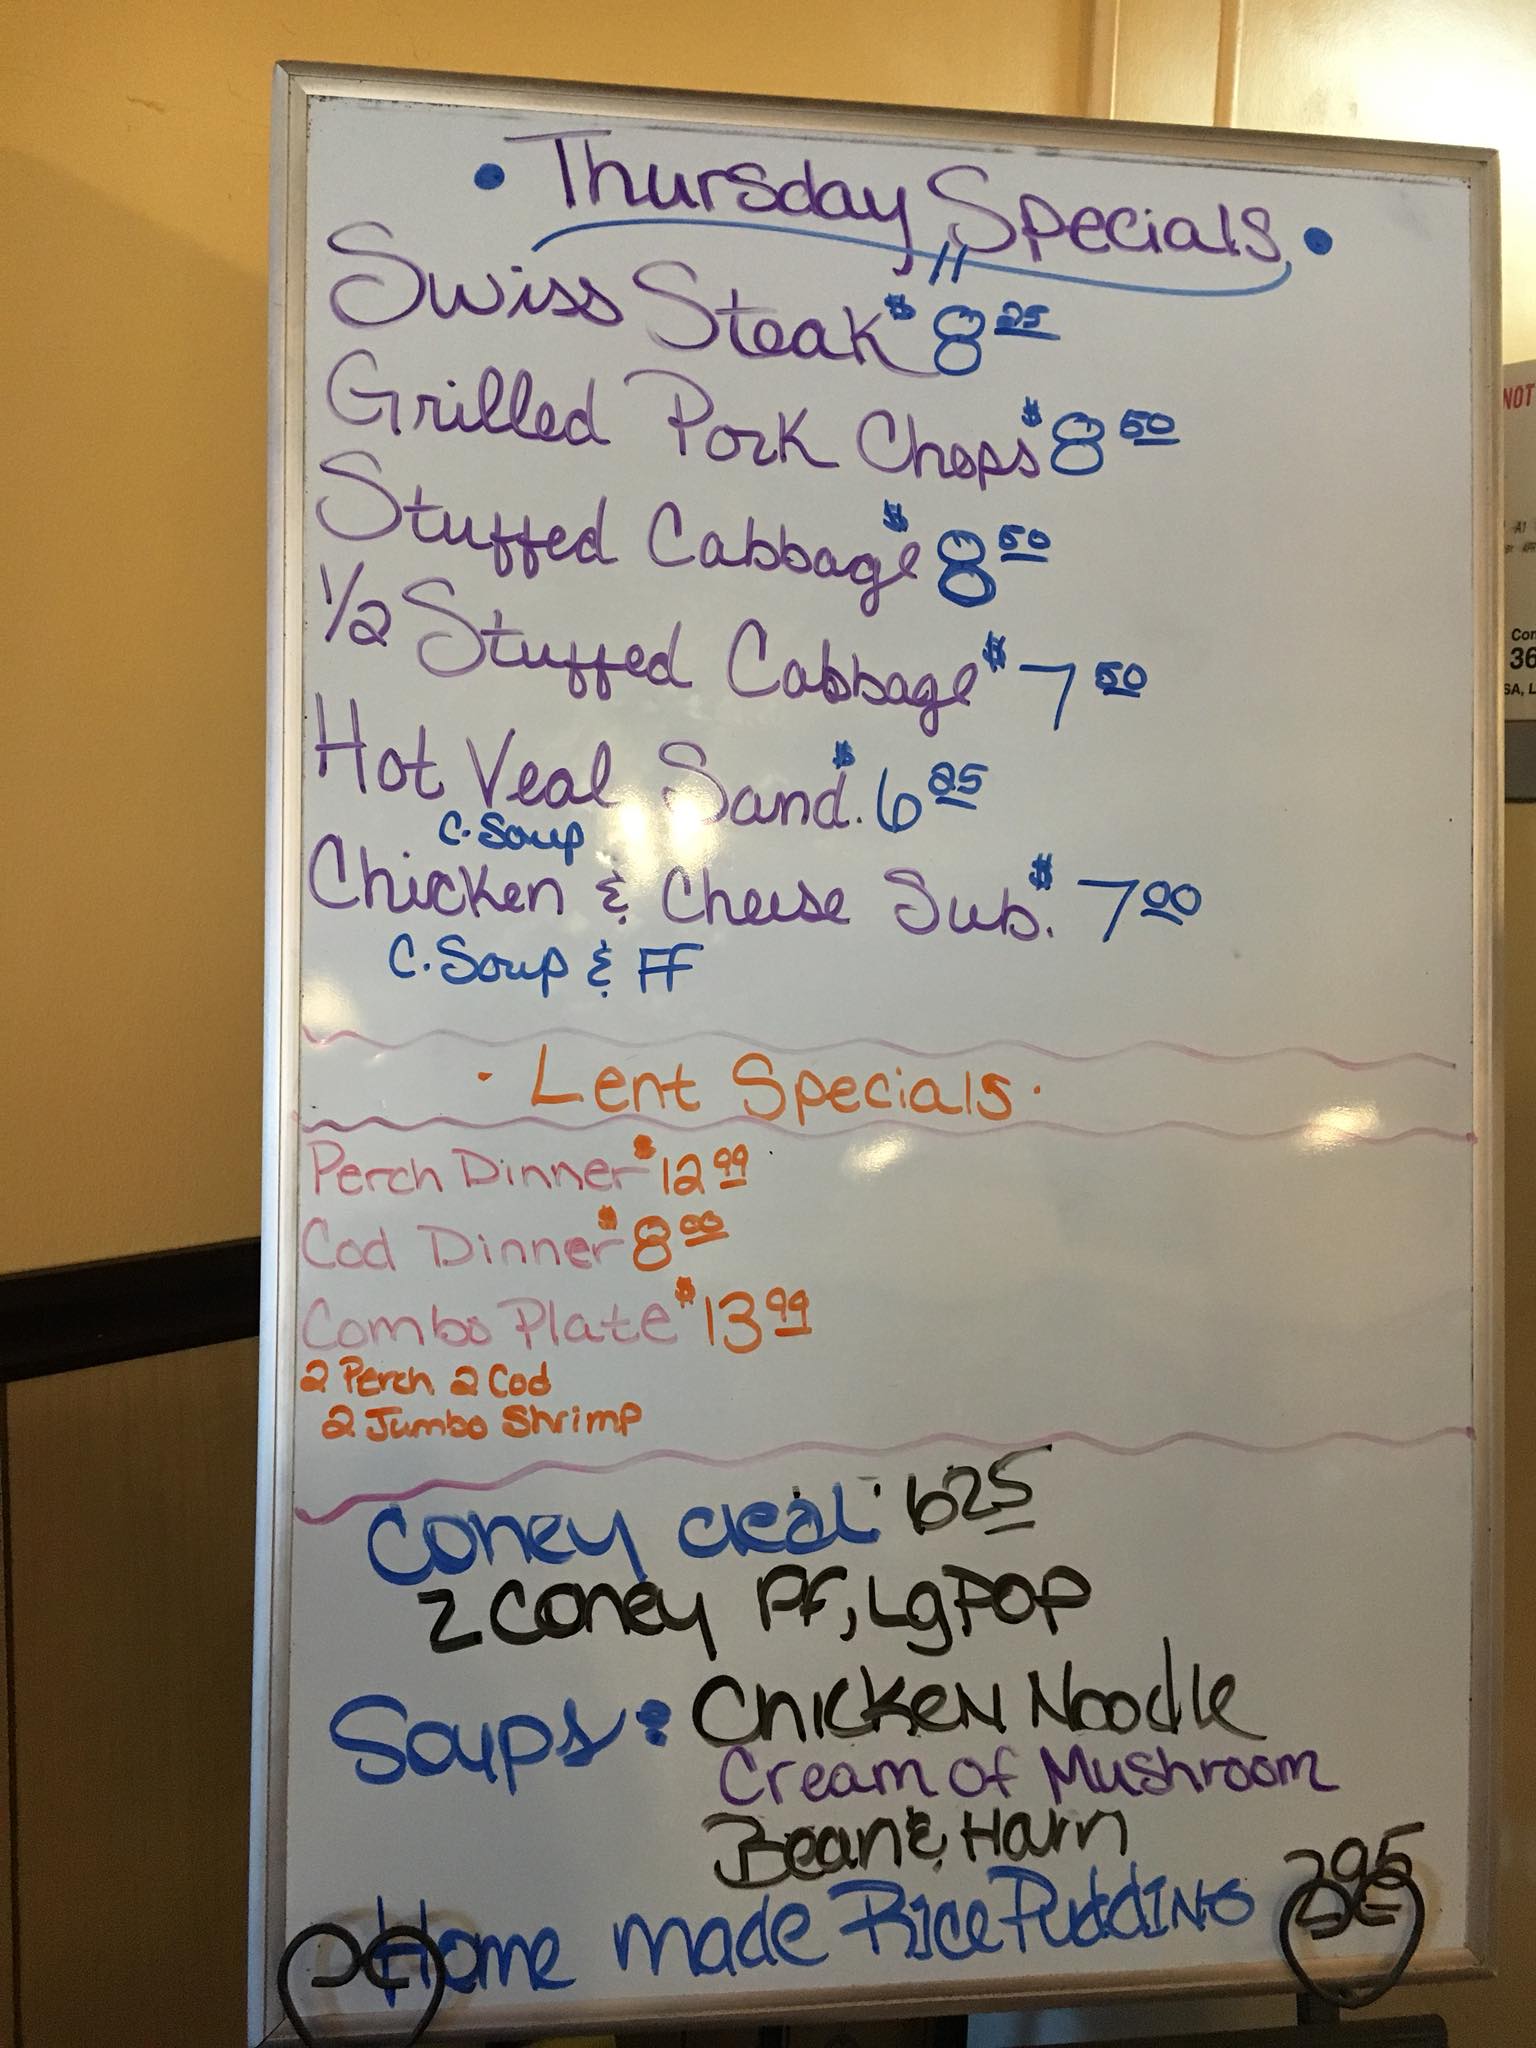 • Thursday Specials •
Swiss Steak $8 25
Grilled Pork Chops $8 50
Stuffed Cabbage $8 50
1/2 Stuffed Cabbage $7 50
Hot Veal Sand. $6 25
C. Soup
Chicken & Cheese Sub. $7 00
C. Soup & FF
· Lent Specials ·
Perch Dinner $12 99
Cod Dinner $8 00
Combo Plate $13 99
2 Perch 2 Cod
2 Jumbo Shrimp
Coney deal: 625
2 Coney FF, Lg POP
Soups: Chicken Noodle
Cream of Mushroom
Bean & Ham
Home made Rice Pudding 295
NOT
A1
Con
36
SA, L